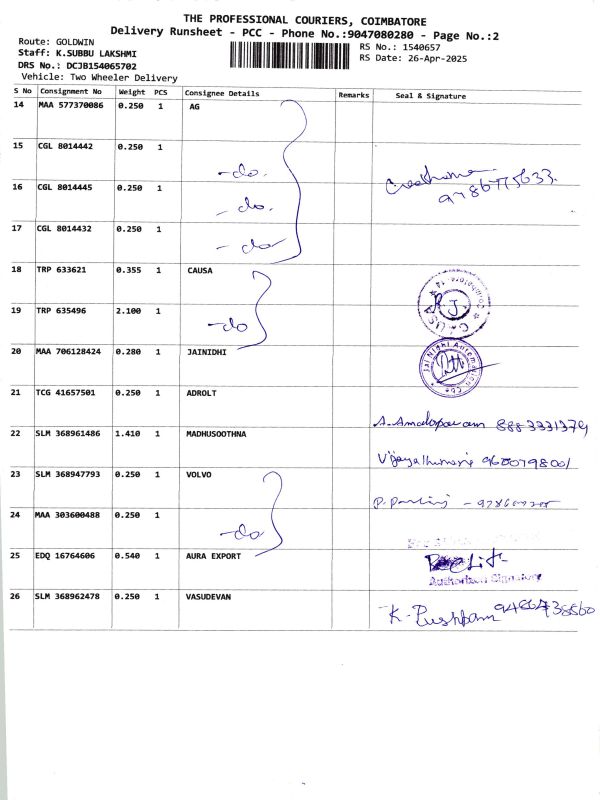 THE PROFESSIONAL COURIERS, COIMBATORE
Delivery Runsheet - PCC - Phone No.:9047080280 - Page No.:2
Route: GOLDWIN
RS No.: 1540657
Staff: K.SUBBU LAKSHMI
RS Date: 26-Apr-2025
DRS No.: DCJB154065702
Vehicle: Two Wheeler Delivery
S No Consignment No Weight PCS Consignee Details Remarks Seal & Signature
14 MAA 577370086 0.250 1 AG
15 CGL 8014442 0.250 1
-do.
16 CGL 8014445 0.250 1
9786775633
- do.
17 CGL 8014432 0.250 1
- do
18 TRP 633621 0.355 1 CAUSA
19 TRP 635496 2.100 1
-do
CAUSA
20 MAA 706128424 0.280 1 JAINIDHI
Jai Nidhi Automation Cbe
21 TCG 41657501 0.250 1 ADROLT
A. Amalopavam 8883331379
22 SLM 368961486 1.410 1 MADHUSOOTHNA
Vijayalhumari 9600798001
23 SLM 368947793 0.250 1 VOLVO
24 MAA 303600488 0.250 1
-do
25 EDQ 16764606 0.540 1 AURA EXPORT
Authorised Signatory
26 SLM 368962478 0.250 1 VASUDEVAN
K. Pushpam